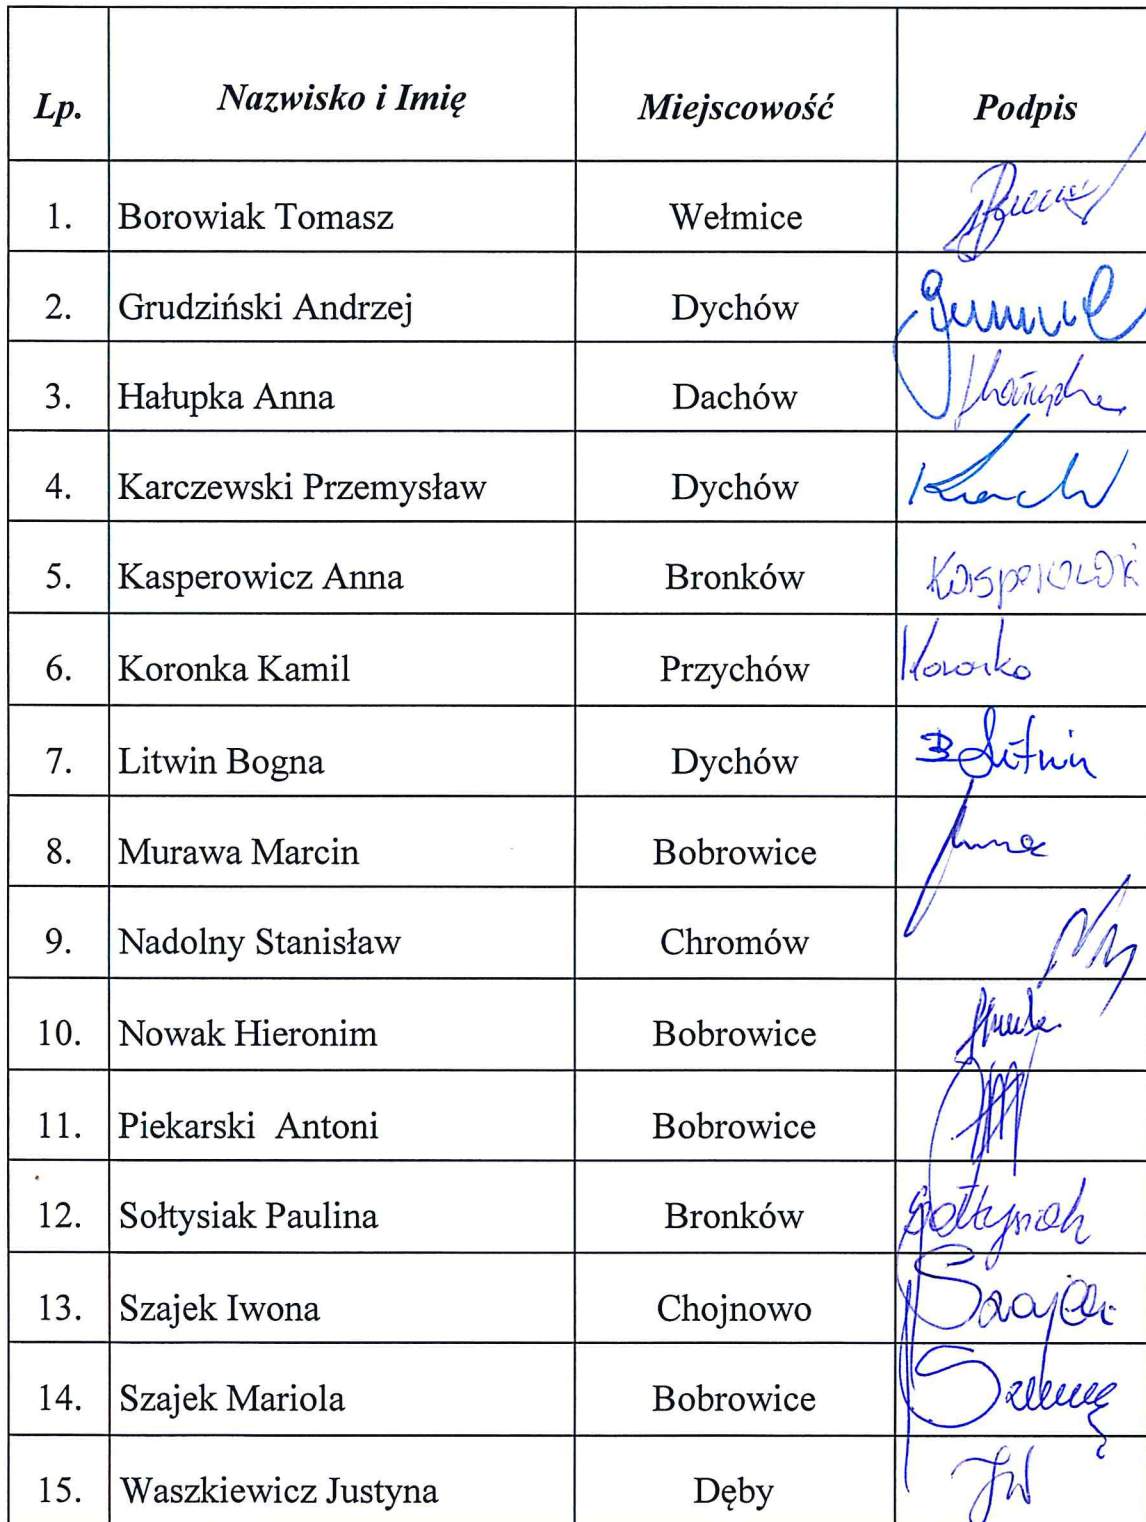 Lp. Nazwisko i Imię Miejscowość Podpis
1. Borowiak Tomasz Wełmice
2. Grudziński Andrzej Dychów
3. Hałupka Anna Dachów
4. Karczewski Przemysław Dychów
5. Kasperowicz Anna Bronków
6. Koronka Kamil Przychów
7. Litwin Bogna Dychów B Litwin
8. Murawa Marcin Bobrowice
9. Nadolny Stanisław Chromów
10. Nowak Hieronim Bobrowice
11. Piekarski Antoni Bobrowice
12. Sołtysiak Paulina Bronków Sołtysiak
13. Szajek Iwona Chojnowo Szajek
14. Szajek Mariola Bobrowice
15. Waszkiewicz Justyna Dęby JW